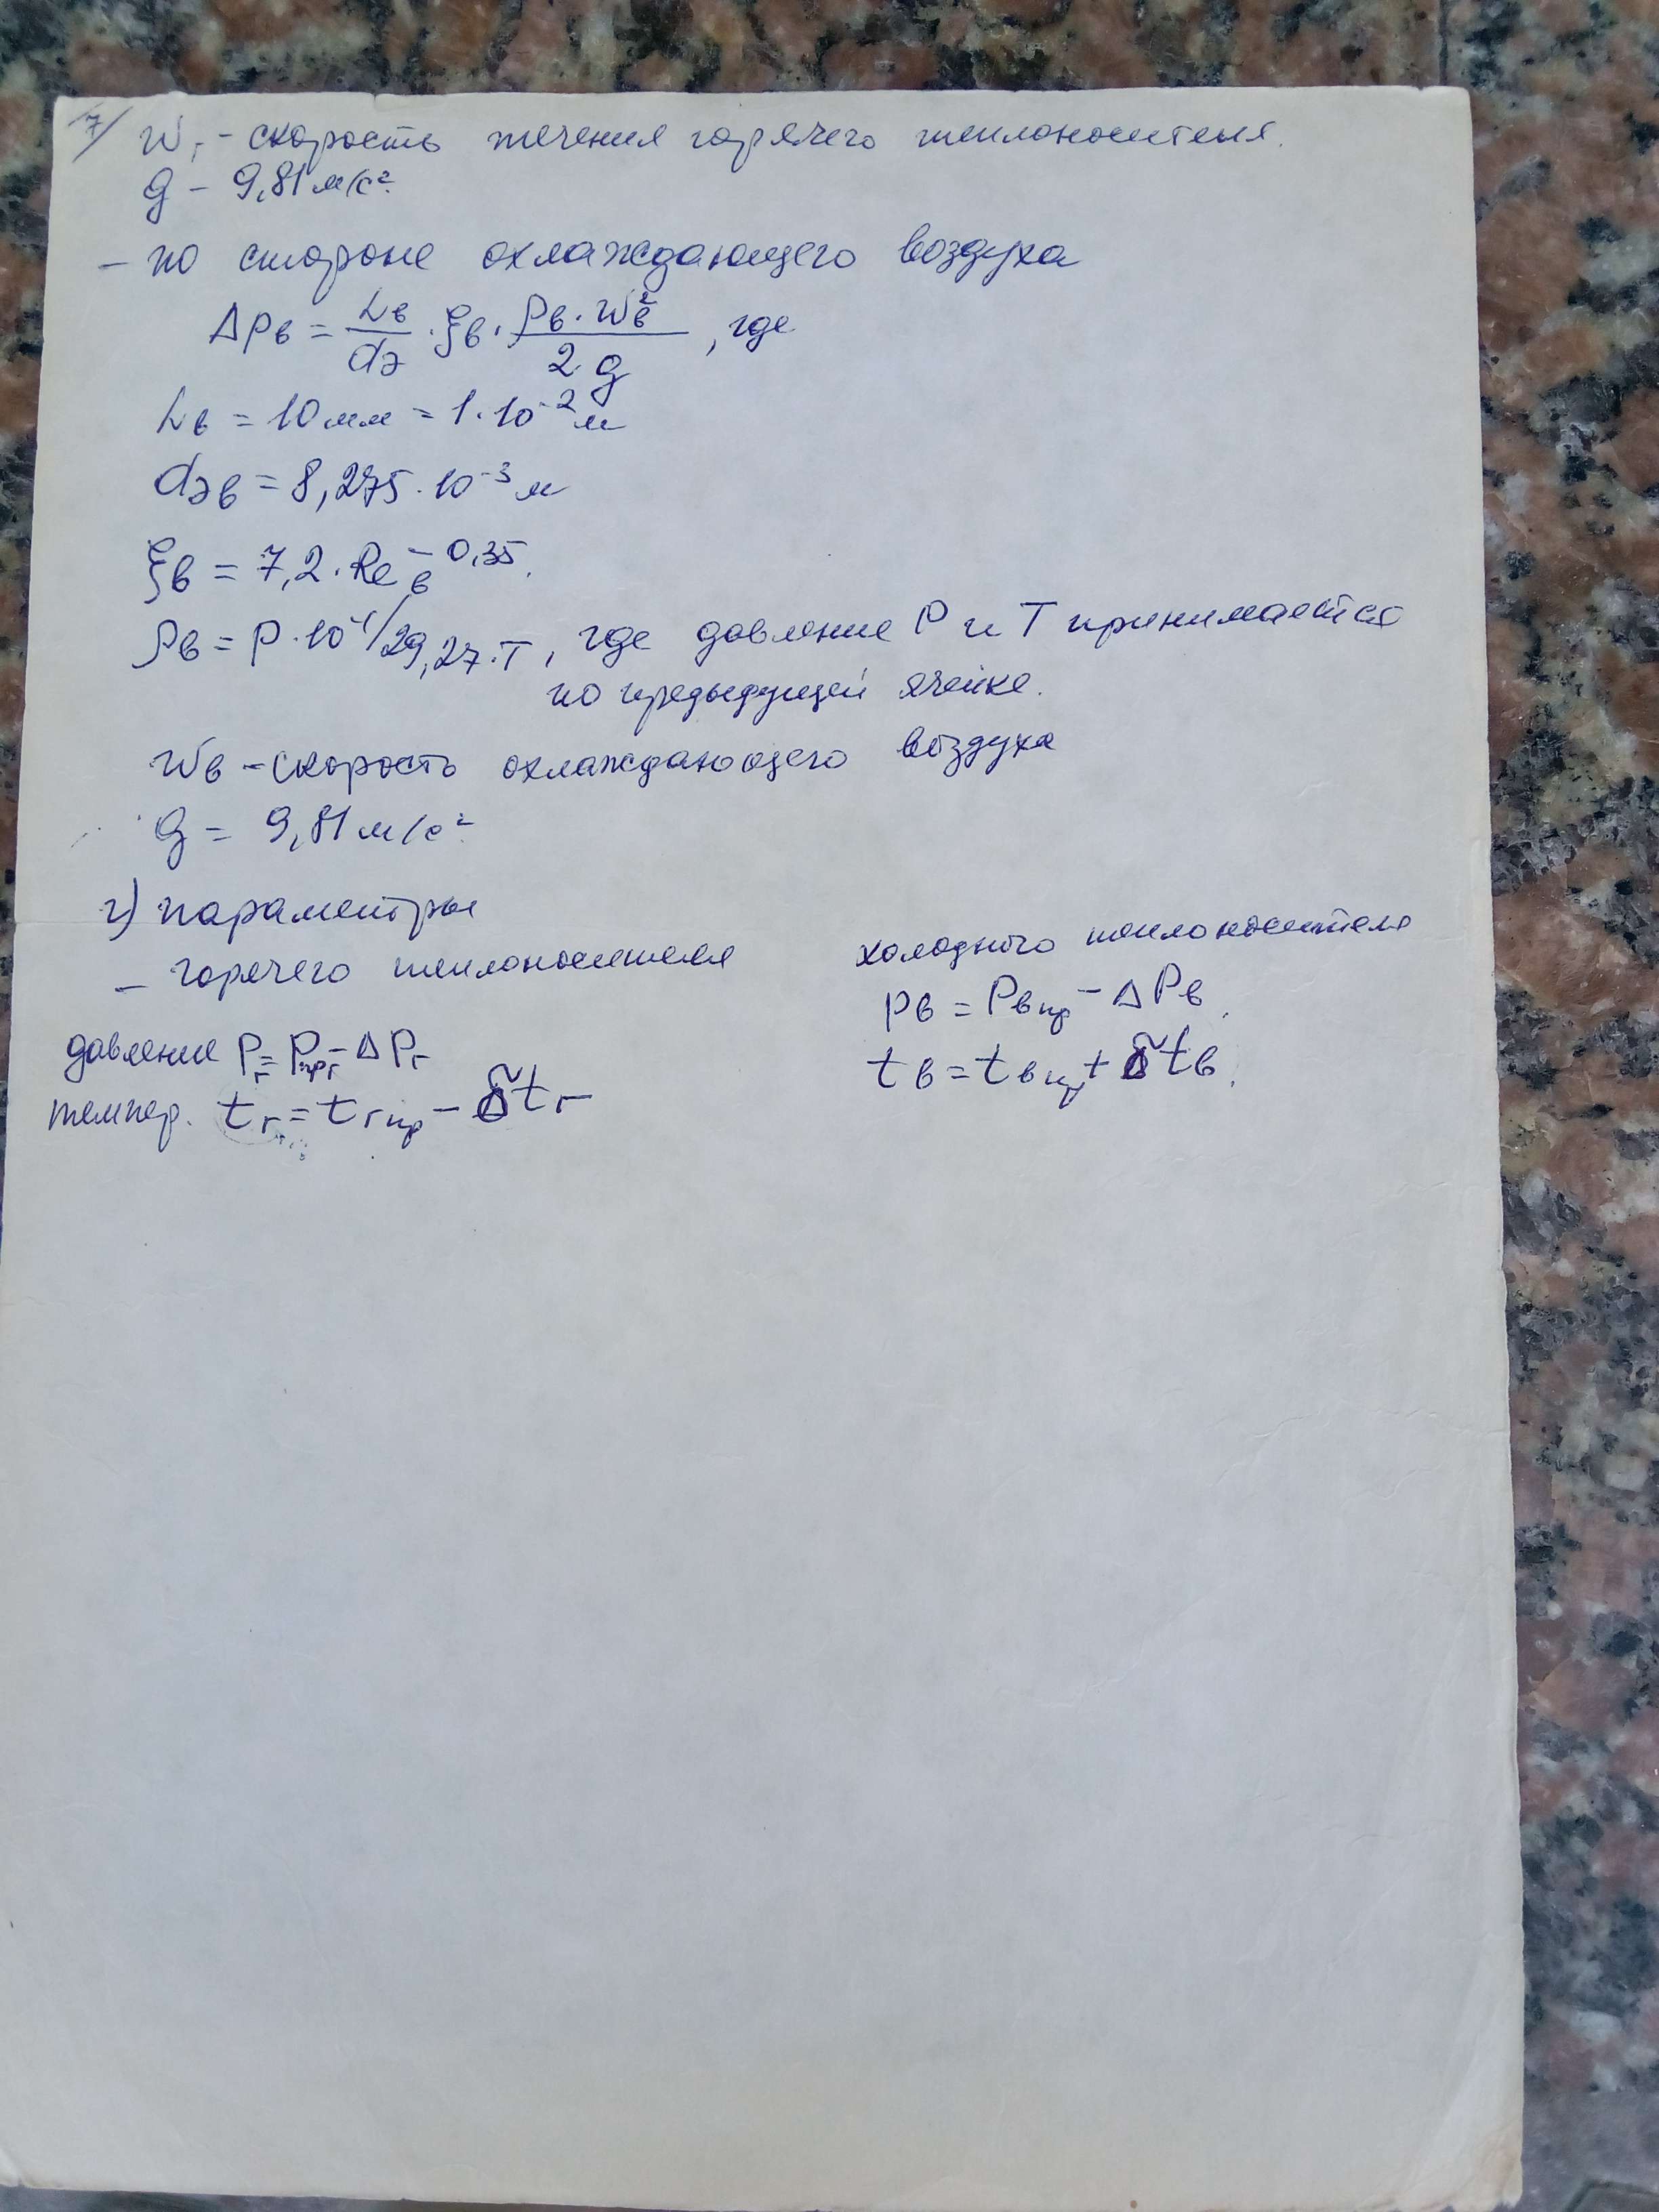 7/ Wг - скорость течения горячего теплоносителя.
g - 9,81 м/с².
- по стороне охлаждающего воздуха
ΔPв = Lв/dэ · ξв · ρв · Wв²/2g, где
Lв = 10 мм = 1·10⁻² м
dэв = 8,275·10⁻³ м
ξв = 7,2·Reв⁻⁰,³⁵.
ρв = P·10⁻¹/29,27·T, где давление P и T принимается
по предыдущей ячейке.
Wв - скорость охлаждающего воздуха
g = 9,81 м/с²
г) параметры
- горячего теплоносителя
давление Pг = Pпрг - ΔPг
темпер. tг = tгпр - δtг
холодного теплоносителя
Pв = Pвпр - ΔPв.
tв = tвпр + δtв.